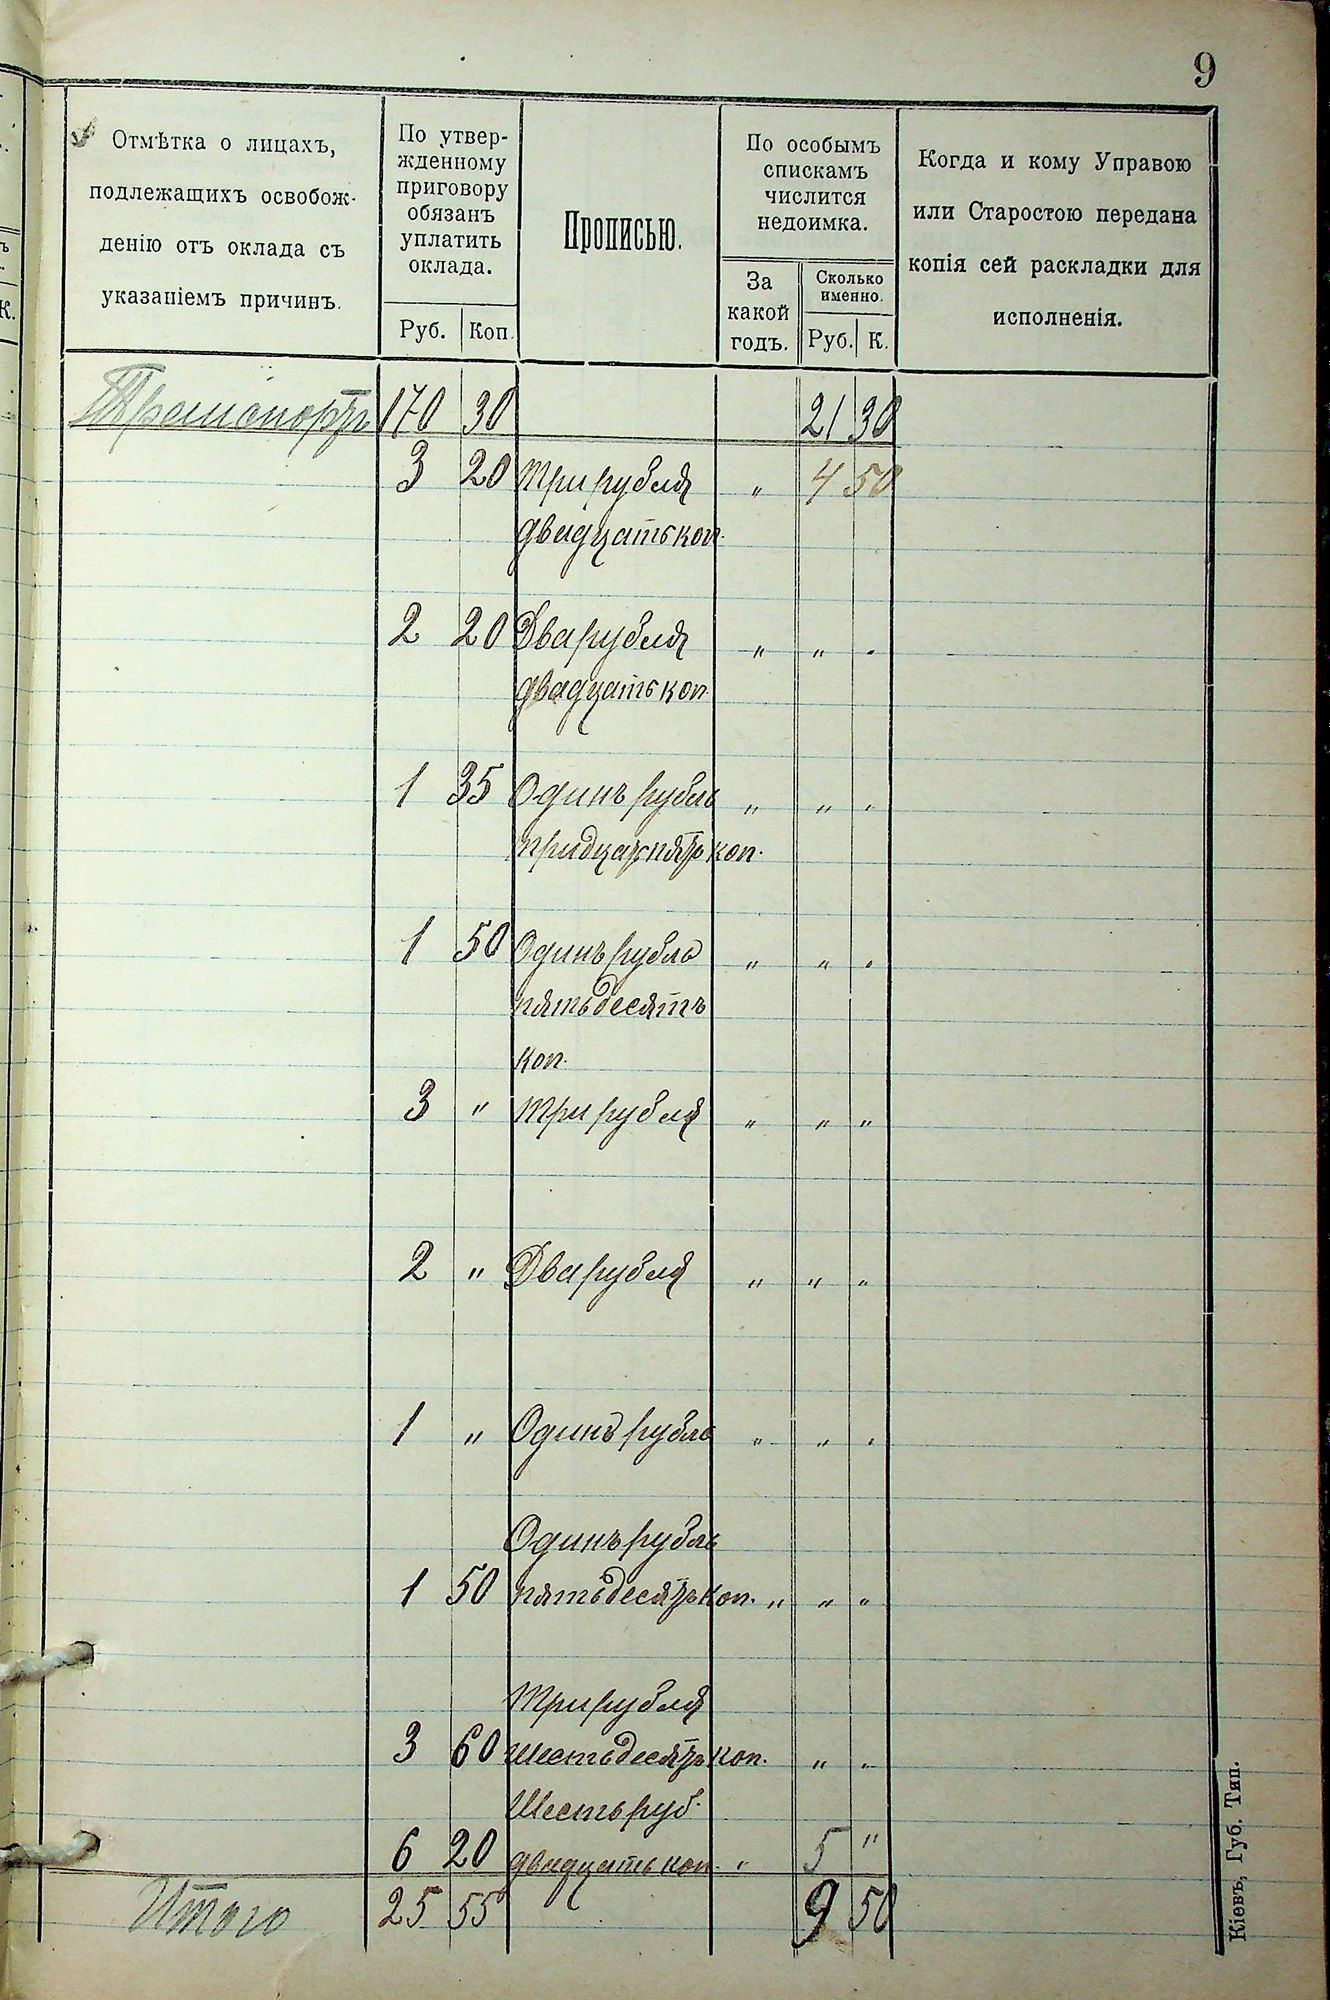 9
Отмѣтка о лицахъ,
подлежащихъ освобож-
денію отъ оклада съ
указаніемъ причинъ.
По утвер-
жденному
приговору
обязанъ
уплатить
оклада.
Руб. Коп.
Прописью.
По особымъ
спискамъ
числится
недоимка.
За
какой
годъ.
Сколько
именно.
Руб. К.
Когда и кому Управою
или Старостою передана
копія сей раскладки для
исполненія.
К.
Транспортъ 170 30 21 30
3 20 Три рубля " 4 50
двадцать коп.
2 20 Два рубля " " "
двадцать коп.
1 35 Одинъ рубль " " "
тридцать пять коп.
1 50 Одинъ рубль " " "
пятьдесятъ
коп.
3 " Три рубля " " "
2 " Два рубля " " "
1 " Одинъ рубль " " "
Одинъ рубль
1 50 пятьдесятъ коп. " " "
Три рубля
3 60 шестьдесятъ коп. " "
Шесть руб.
6 20 двадцать коп. " 5 "
Итого 25 55 9 50
Кіевъ, Губ. Тип.